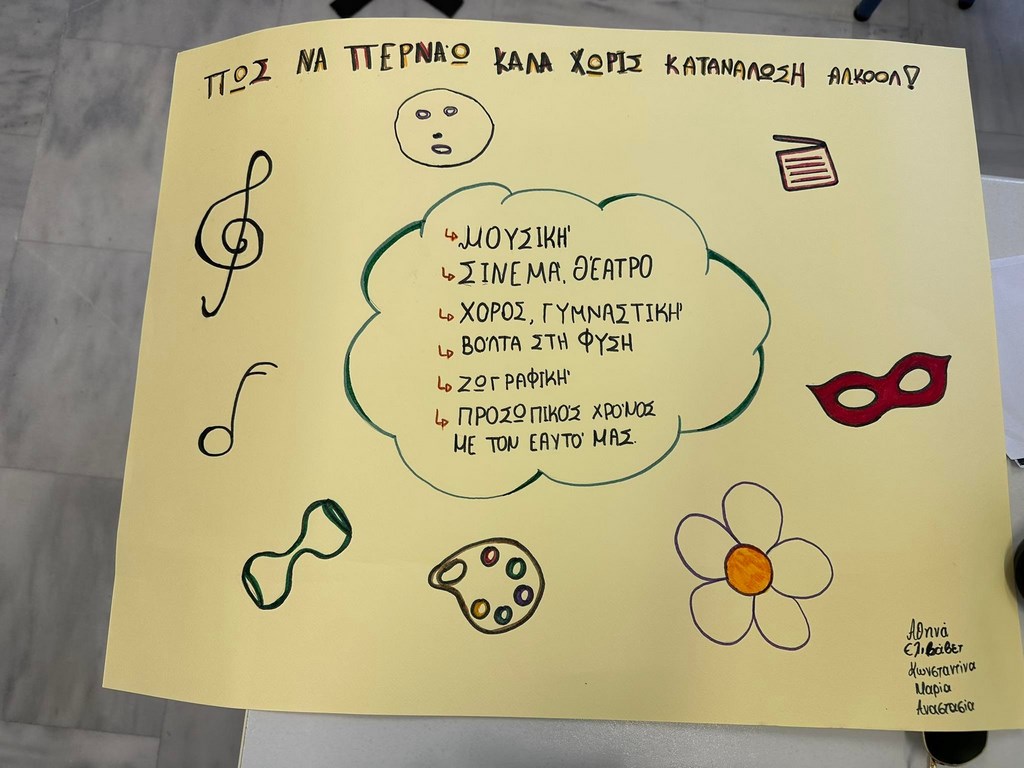 ΠΩΣ ΝΑ ΠΕΡΝΑΩ ΚΑΛΑ ΧΩΡΙΣ ΚΑΤΑΝΑΛΩΣΗ ΑΛΚΟΟΛ!
↳ ΜΟΥΣΙΚΉ
↳ ΣΙΝΕΜΆ, ΘΈΑΤΡΟ
↳ ΧΟΡΟΣ, ΓΥΜΝΑΣΤΙΚΉ
↳ ΒΌΛΤΑ ΣΤΗ ΦΥΣΗ
↳ ΖΩΓΡΑΦΙΚΉ
↳ ΠΡΟΣΩΠΙΚΌΣ ΧΡΌΝΟΣ
ΜΕ ΤΟΝ ΕΑΥΤΌ ΜΑΣ.
Αθηνά
Ελισάβετ
Κωνσταντίνα
Μαρία
Αναστασία